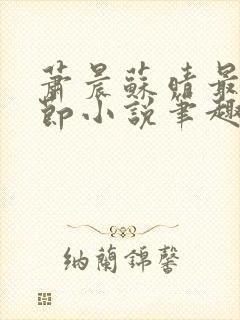 蕭晨蘇晴最
節小說筆趣
納蘭錦馨